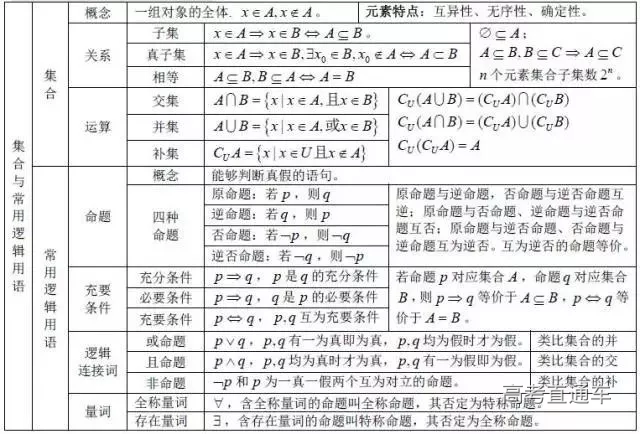 集合与常用逻辑用语
集合
概念
一组对象的全体. x∈A, x∉A。
元素特点：互异性、无序性、确定性。
关系
子集
x∈A⇒x∈B⇔A⊆B。
真子集
x∈A⇒x∈B,∃x₀∈B,x₀∉A⇔A⊂B
相等
A⊆B,B⊆A⇔A=B
∅⊆A；
A⊆B,B⊆C⇒A⊆C
n个元素集合子集数2ⁿ。
运算
交集
A∩B={x|x∈A,且x∈B}
并集
A∪B={x|x∈A,或x∈B}
补集
C_U A={x|x∈U且x∉A}
C_U(A∪B)=(C_U A)∩(C_U B)
C_U(A∩B)=(C_U A)∪(C_U B)
C_U(C_U A)=A
常用逻辑用语
命题
概念
能够判断真假的语句。
四种
命题
原命题：若p，则q
逆命题：若q，则p
否命题：若¬p，则¬q
逆否命题：若¬q，则¬p
原命题与逆命题，否命题与逆否命题互
逆；原命题与否命题、逆命题与逆否命
题互否；原命题与逆否命题、否命题与
逆命题互为逆否。互为逆否的命题等价。
充要
条件
充分条件
p⇒q，p是q的充分条件
必要条件
p⇒q，q是p的必要条件
充要条件
p⇔q，p,q互为充要条件
若命题p对应集合A，命题q对应集合
B，则p⇒q等价于A⊆B，p⇔q等
价于A=B。
逻辑
连接词
或命题
p∨q，p,q有一为真即为真，p,q均为假时才为假。
类比集合的并
且命题
p∧q，p,q均为真时才为真，p,q有一为假即为假。
类比集合的交
非命题
¬p和p为一真一假两个互为对立的命题。
类比集合的补
量词
全称量词
∀，含全称量词的命题叫全称命题，其否定为特称命题。
存在量词
∃，含存在量词的命题叫特称命题，其否定为全称命题。
高考直通车